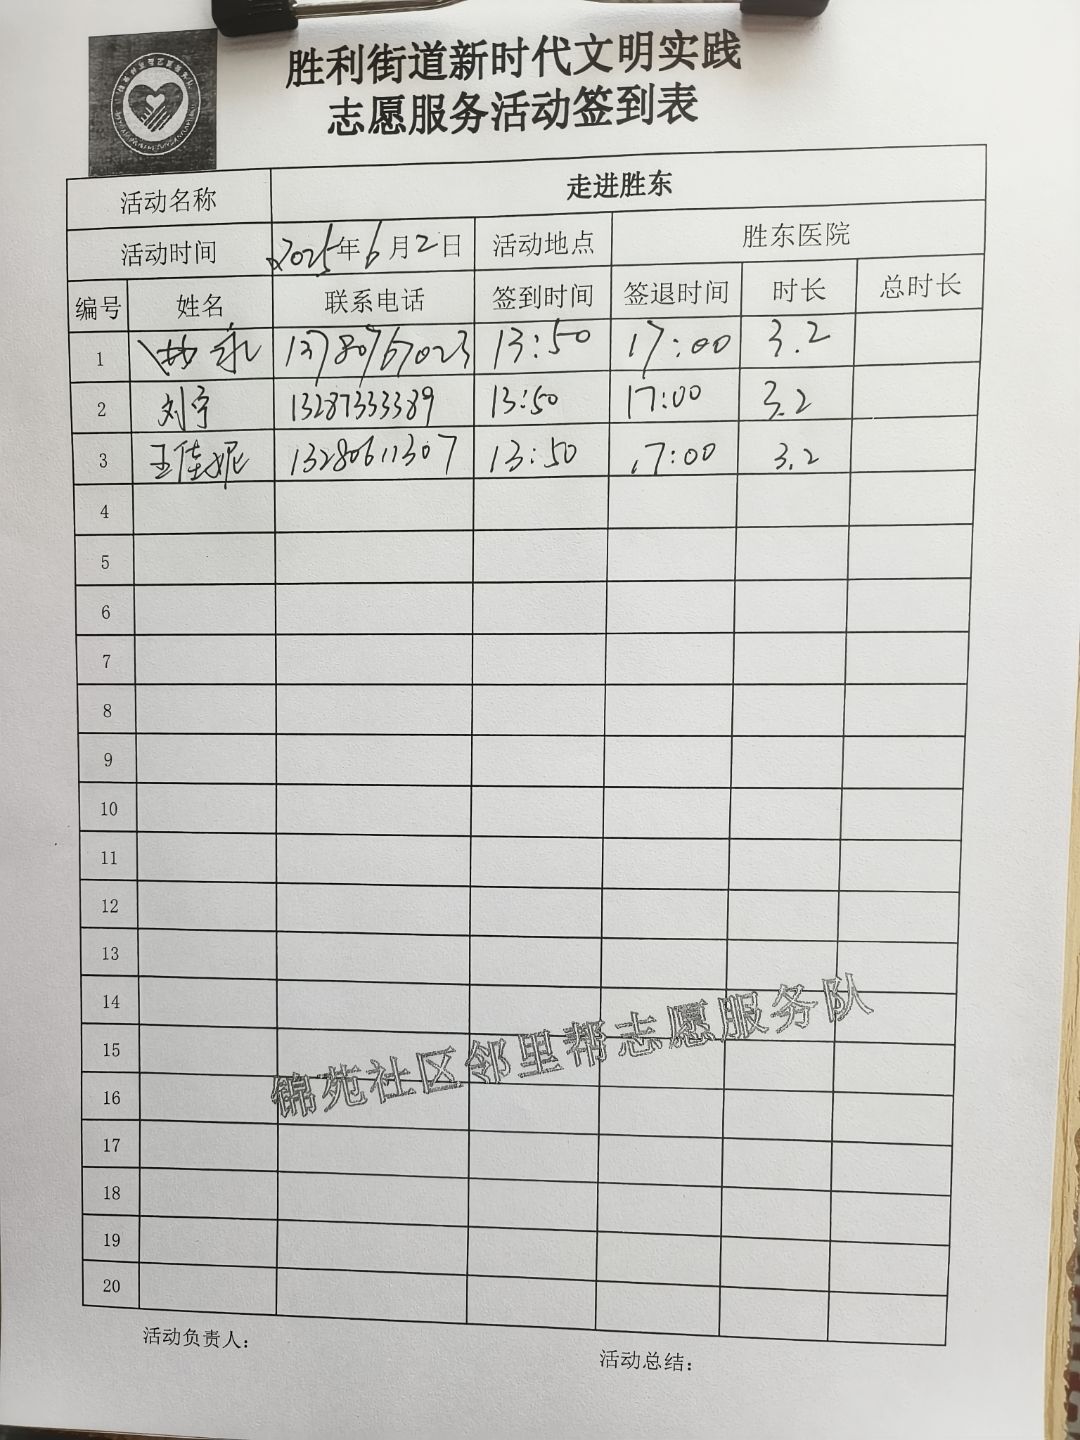 胜利街道新时代文明实践
志愿服务活动签到表
活动名称 走进胜东
活动时间 2025年6月2日 活动地点 胜东医院
编号 姓名 联系电话 签到时间 签退时间 时长 总时长
1 永 13780767023 13:50 17:00 3.2
2 刘宁 13287333389 13:50 17:00 3.2
3 王佳妮 13280611307 13:50 17:00 3.2
4
5
6
7
8
9
10
11
12
13
14
15
16
17
18
19
20
锦苑社区邻里帮志愿服务队
活动负责人：
活动总结：